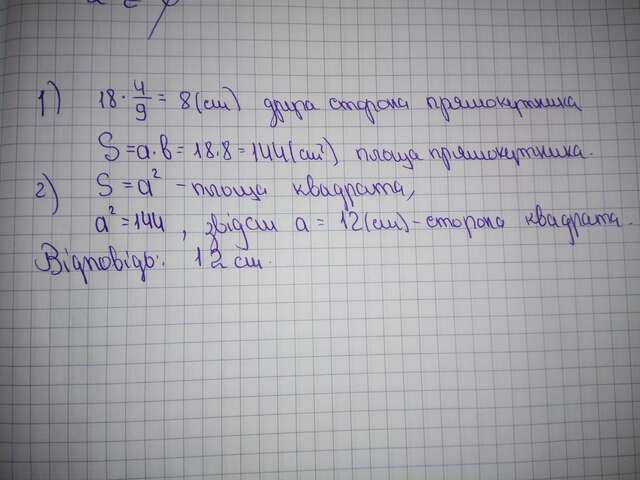 1) 18 · 4/9 = 8 (см) друга сторона прямокутника
S = a · b = 18 · 8 = 144 (см²) площа прямокутника.
2) S = a² - площа квадрата,
a² = 144, звідси a = 12 (см) - сторона квадрата.
Відповідь: 12 см.